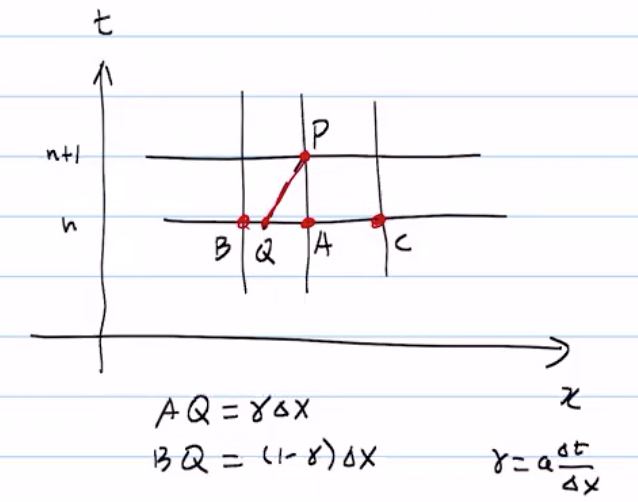 t
n+1
P
n
B Q A C
x
AQ = γΔx
BQ = (1-γ)Δx
γ = a Δt/Δx